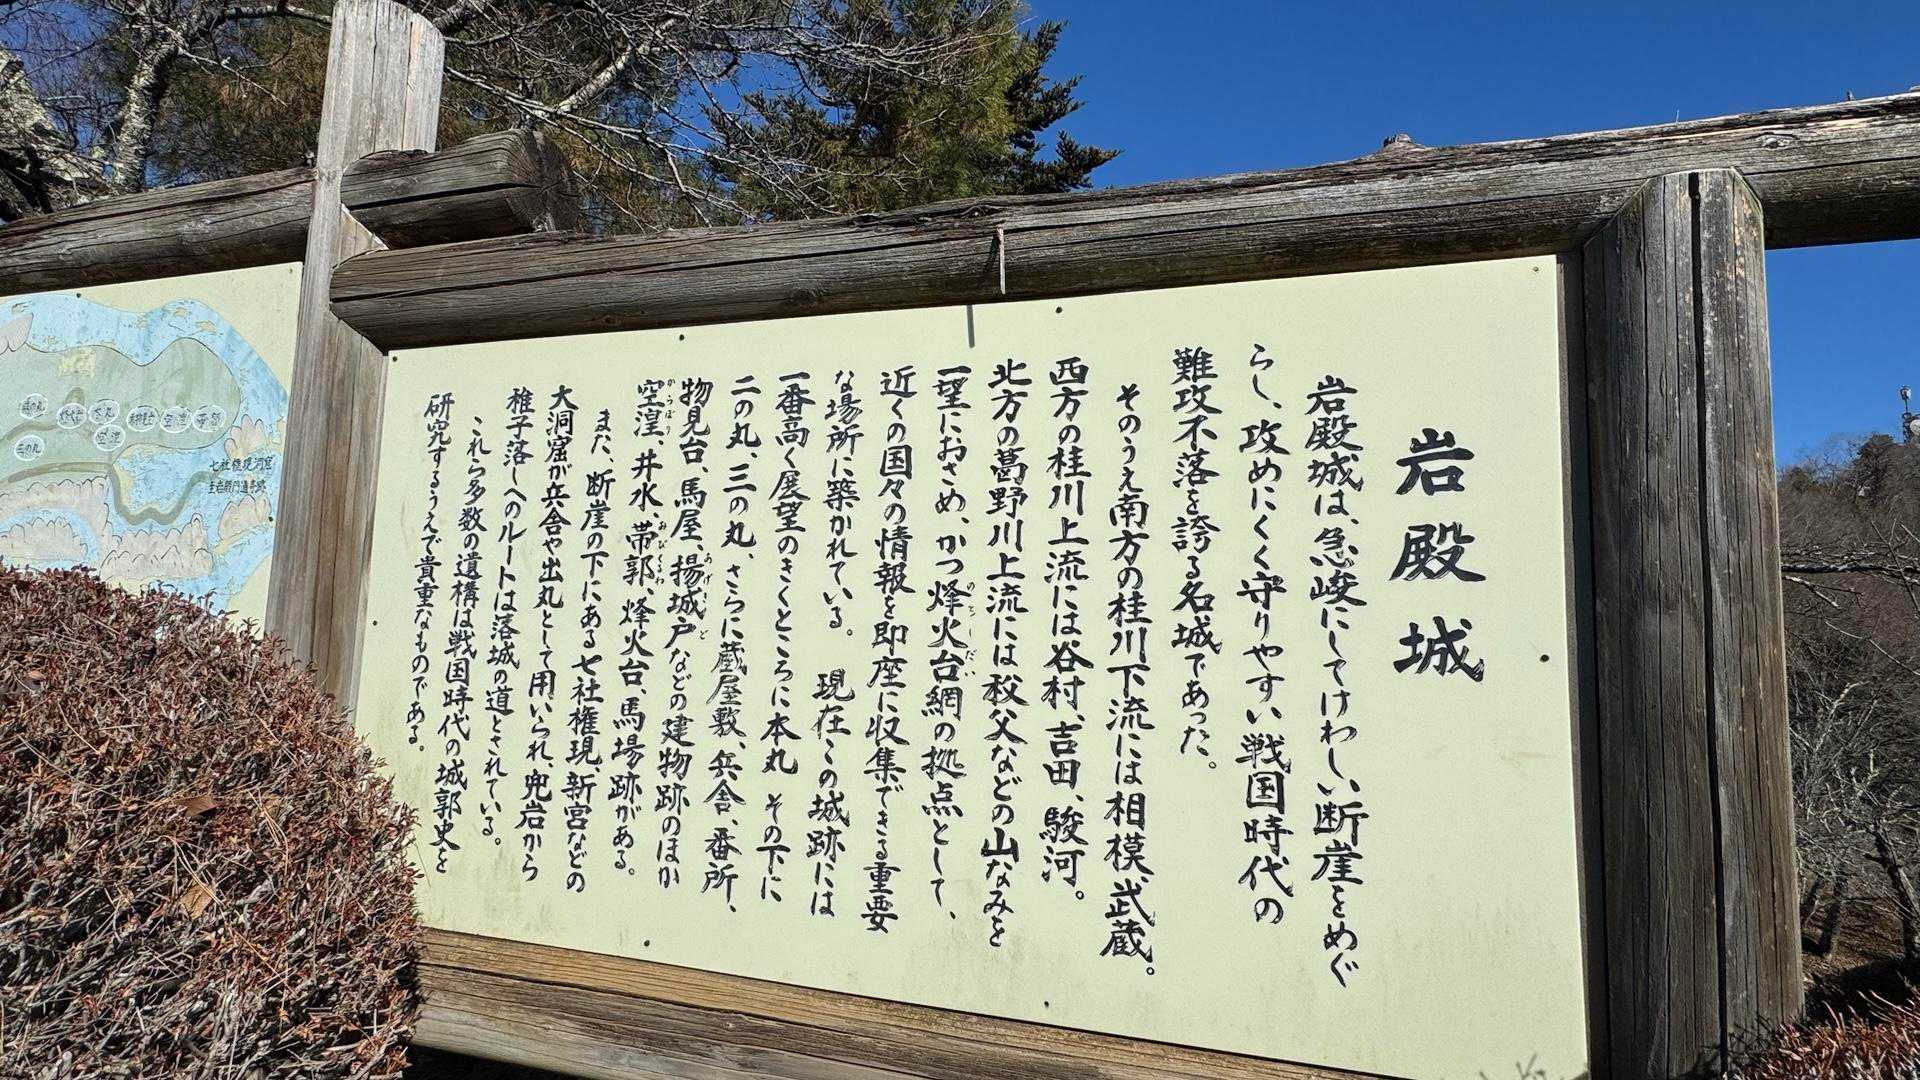 岩殿城
岩殿城は、急峻にしてけわしい断崖をめぐ
らし、攻めにくく守りやすい戦国時代の
難攻不落を誇る名城であった。
そのうえ南方の桂川下流には相模、武蔵。
西方の桂川上流には谷村、吉田、駿河。
北方の葛野川上流には秩父などの山なみを
一望におさめ、かつ烽火台網の拠点として、
のろしだい
近くの国々の情報を即座に収集できる重要
な場所に築かれている。 現在この城跡には
一番高く展望のきくところに本丸 その下に
二の丸、三の丸、さらに蔵屋敷、兵舎、番所、
物見台、馬屋、揚城戸などの建物跡のほか
あげきど
空湟、井水、帯郭、烽火台、馬場跡がある。
からぼり
おびくるわ
また、断崖の下にある七社権現 新宮などの
大洞窟が兵舎や出丸として用いられ、兜岩から
稚子落しへのルートは落城の道とされている。
これら多数の遺構は戦国時代の城郭史を
研究するうえで貴重なものである。
本丸
空湟
三の丸
七社権現洞窟